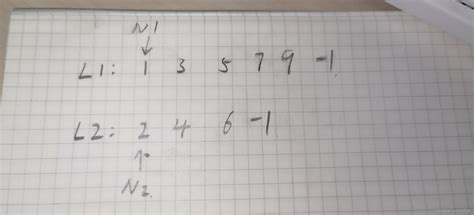 N1
↓
L1: 1 3 5 7 9 -1
L2: 2 4 6 -1
↑
N2